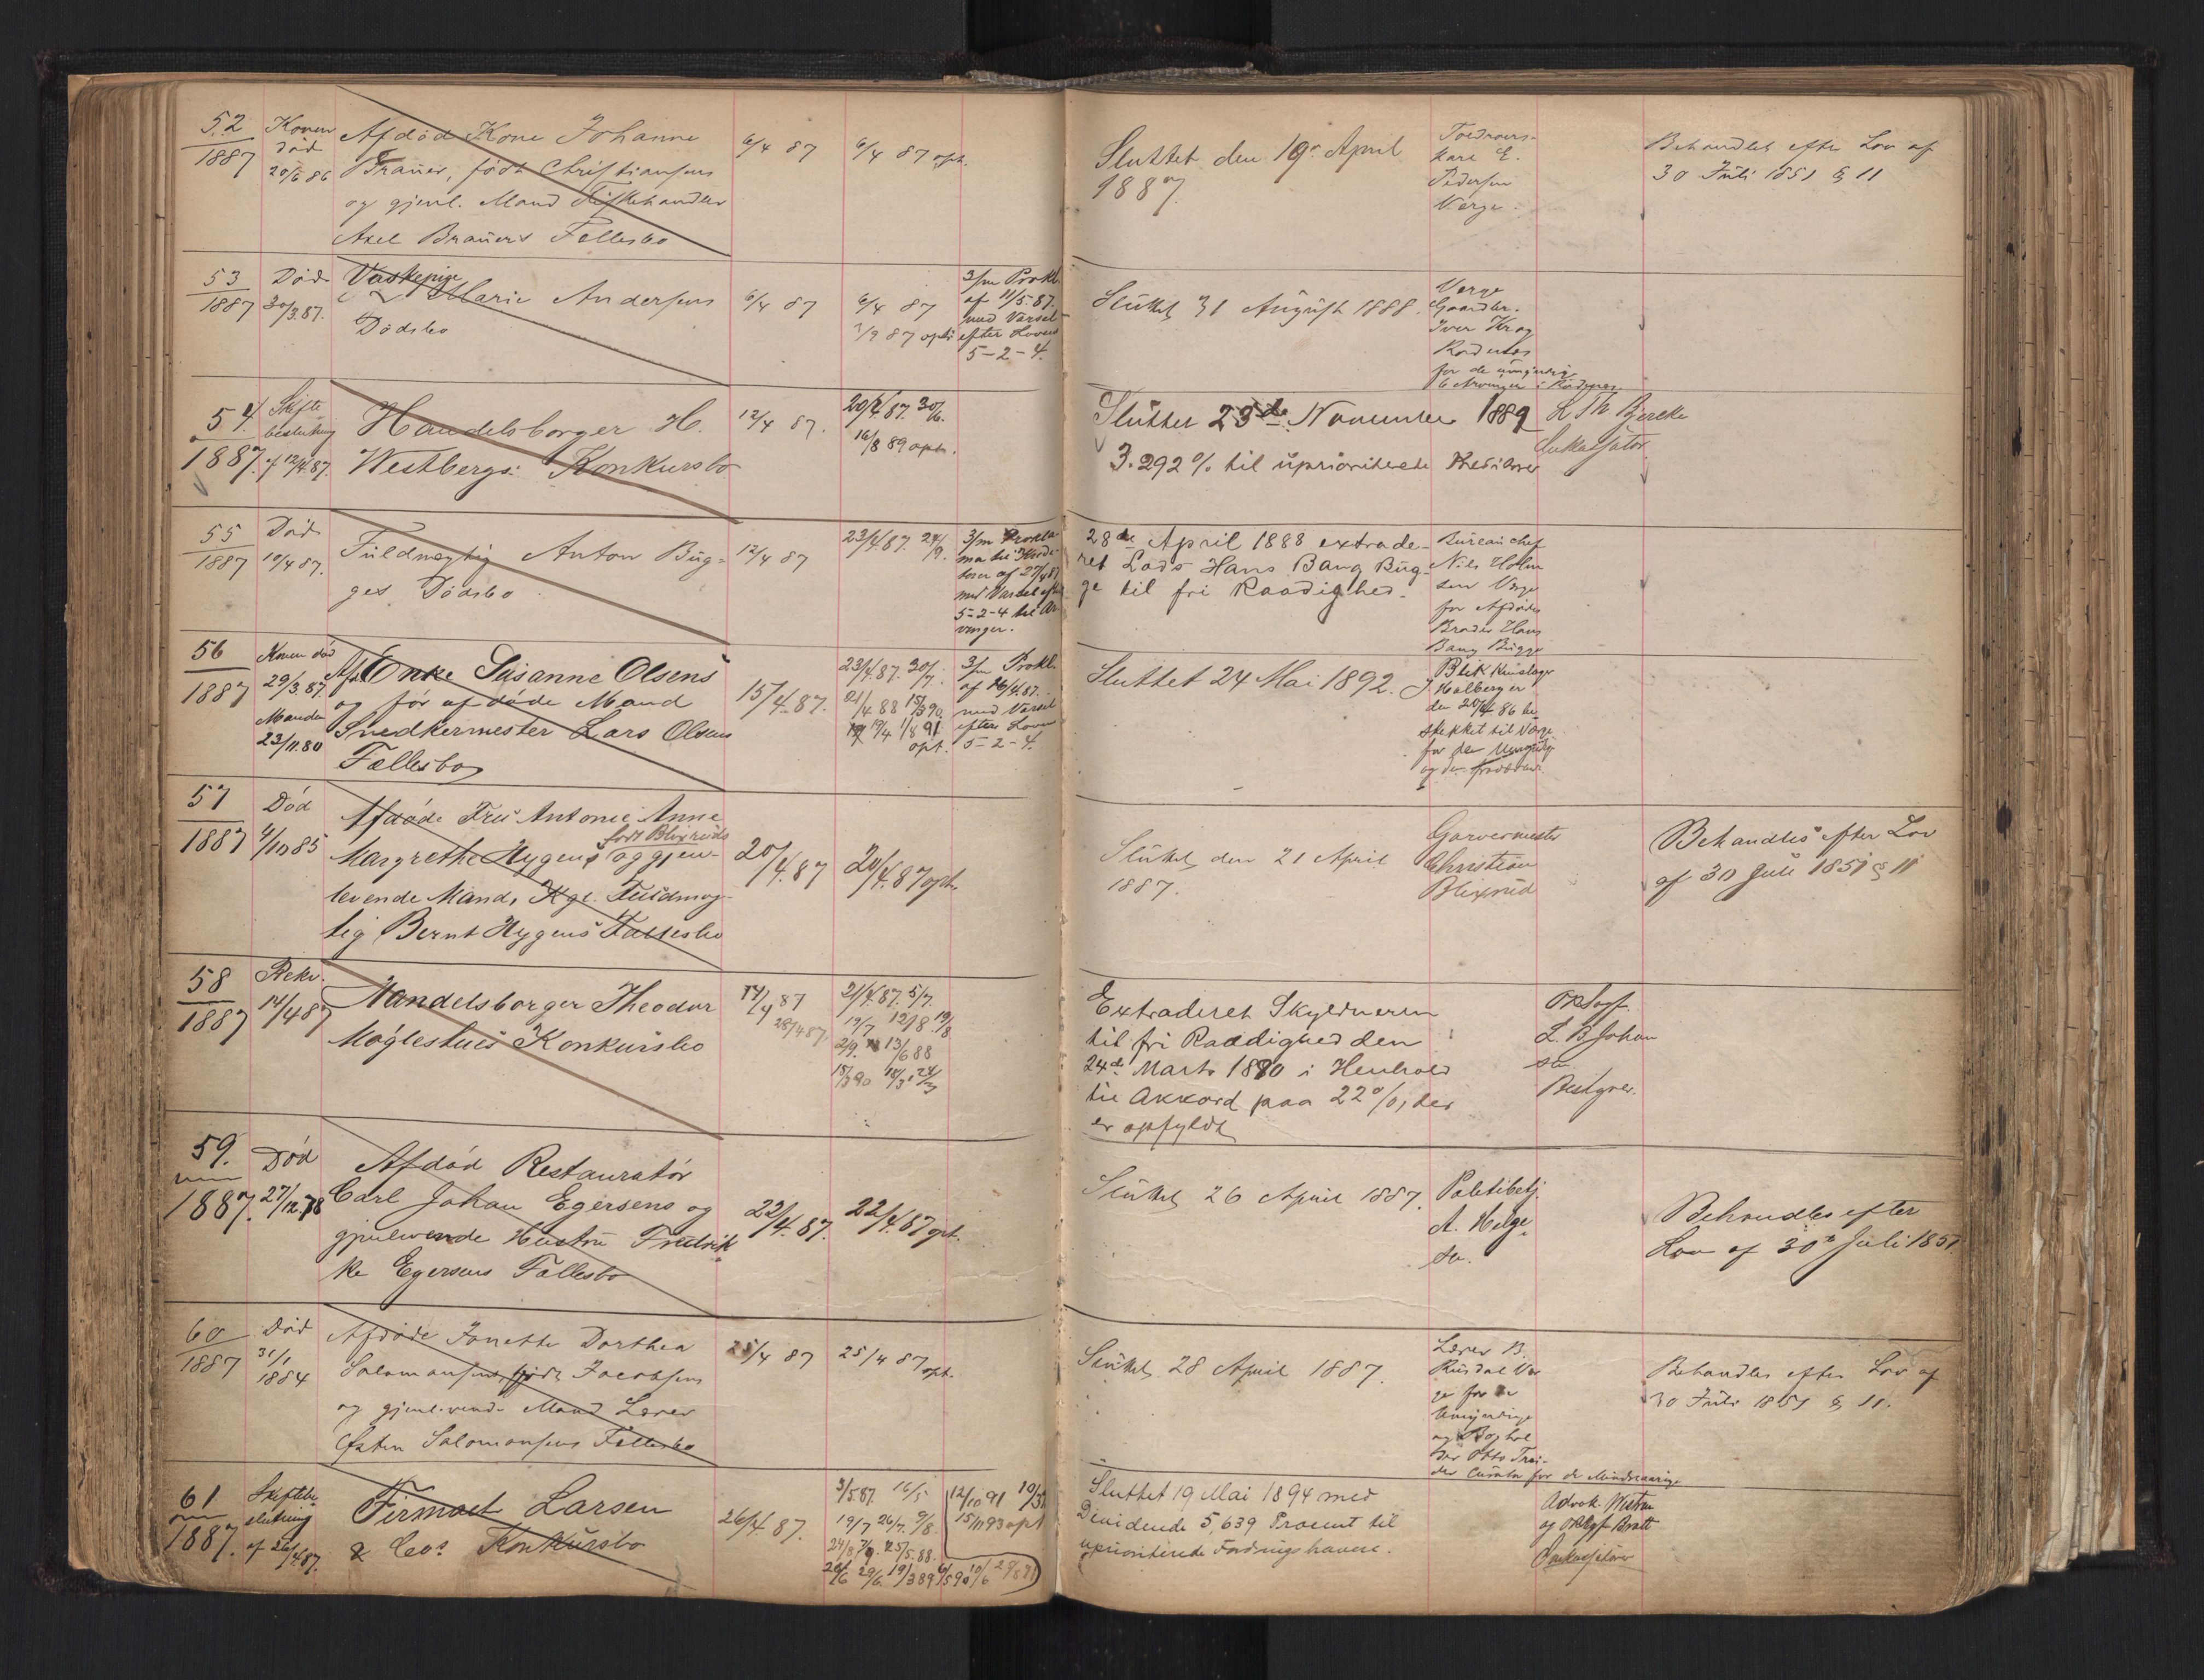 52
1887
Konen
død
20/6 86
Afdød Kone Johanne
Brauer, født Christiansens
og gjenl. Mand Fiskehandler
Axel Brauers Fellesbo
6/4 87
6/4 87 opt.
Sluttet den 19de April
1887.
Kare E.
Pedersen
Verge.
Behandlet efter Lov af
30 Juli 1851 § 11
53
1887
Død
30/3.87.
Vaskepige
Marie Andersens
Dødsbo
6/4 87
6/4 87
1/9 87 opt.
3/m Prokl.
af 11/5 87.
med Varsel
efter Lovens
5-2-4.
Sluttet 31 August 1888.
Verge
Gaardbr.
Iver Krog
Rødenes
for de umyndige
6 Arvinger i Rødenes.
54.
1887.
Skifte
beslutning
af 12/4.87.
Handelsborger H.
Westbergs Konkursbo
12/4 87.
20/4.87. 30/6.
16/8 89 opt.
Sluttet 23de November 1889
3.292 % til uprioriterede Kreditorer
L Th. Bjercke
Inkassator
55
1887
Død
10/4 87.
Fuldmægtig Anton Bug-
ges Dødsbo
12/4 87
23/4 87. 24/9.
3/m Prokla-
ma til Kredi-
torer af 27/4 87
med Varsel efter
5-2-4 til Ar
vinger.
28de April 1888 extrade-
ret Lods Hans Bang Bug-
ge til fri Raadighed.
Bureauchef
Nils Holm
sen Verge
for Afdødes
Broder Hans
Bang Bugge
56
1887
Konen død
29/3.87.
Manden
23/11.80
Afd. Enke Susanne Olsens
og før afdøde Mand
Snedkermester Lars Olsens
Fællesbo
15/4.87.
23/4.87. 30/7.
21/4 88 15/3 90.
19/4 1/8 91
opt.
3/m Prokl.
af 16/4.87.
med Varsel
efter Lovens
5-2-4.
Sluttet 24 Mai 1892.
Blikkenslager
J Halberger
den 20/4 86 be
skikket til Værge
for den Umyndige
57
1887
Død
4/10 85
Afdøde Fru Antonie Anne
født Blixruds
Margrethe Hygens og gjen-
levende Mand, Kgl. Fuldmæg-
tig Bernt Hygens Fællesbo
20/4.87
20/4.87 opt.
Sluttet den 21 April
1887.
Garvermester
Christian
Blixrud
Behandles efter Lov
af 30 Juli 1851 § 11
58
1887
Rekv.
14/4 87
Handelsborger Theodor
Møglestues Konkursbo
14/4 87
28/4 87
21/4.87. 5/7.
19/7 12/8 19/8
2/9. 13/6 88
15/3 90 18/3 24/3
Extraderet Skyldneren
til fri Raadighed den
24de Marts 1890 i Henhold
til Akkord paa 22 %, der
er opfyldt
ORSagf.
L. B Johan
sen
Bestyrer.
59.
1887.
Død
27/12.78
Afdød Restauratør
Carl Johan Egersens og
gjenlevende Hustru Fredrik
ke Egersens Fællesbo
22/4.87.
22/4.87 opt.
Sluttet 26 April 1887.
Politibetj.
A. Helge
sen.
Behandles efter
Lov af 30te Juli 1851
60
1887
Død
31/1
1884
Afdøde Jonette Dorthea
Salomonsens født Jacobsens
og gjenlevende Mand Lærer
Østen Salomonsens Fællesbo
25/4 87
25/4 87 opt.
Sluttet 28 April 1887.
Lærer B.
Rusdal Ver
ge for de
Umyndige
og Boghol
der Otto Trai-
der Curator for de Mindreaarige
Behandles efter Lov af
30 Juli 1851 § 11.
61
1887.
Skiftebe
slutning
af 26/4 87.
Firmaet Larsen
& Cos Konkursbo
26/4.87.
3/5.87. 16/5
19/7 26/7. 9/8.
24/8 7/9. 25/5.88.
20/6 29/6. 19/3 89 6/5 90 10/6 29/8 91
12/10 91 10/3
15/11 93 opt
Sluttet 19 Mai 1894 med
Dividende 5,639 Procent til
uprioriterede Fordringshavere.
Advok. Wistin
og ORSgf. Bratt
Inkassatorer